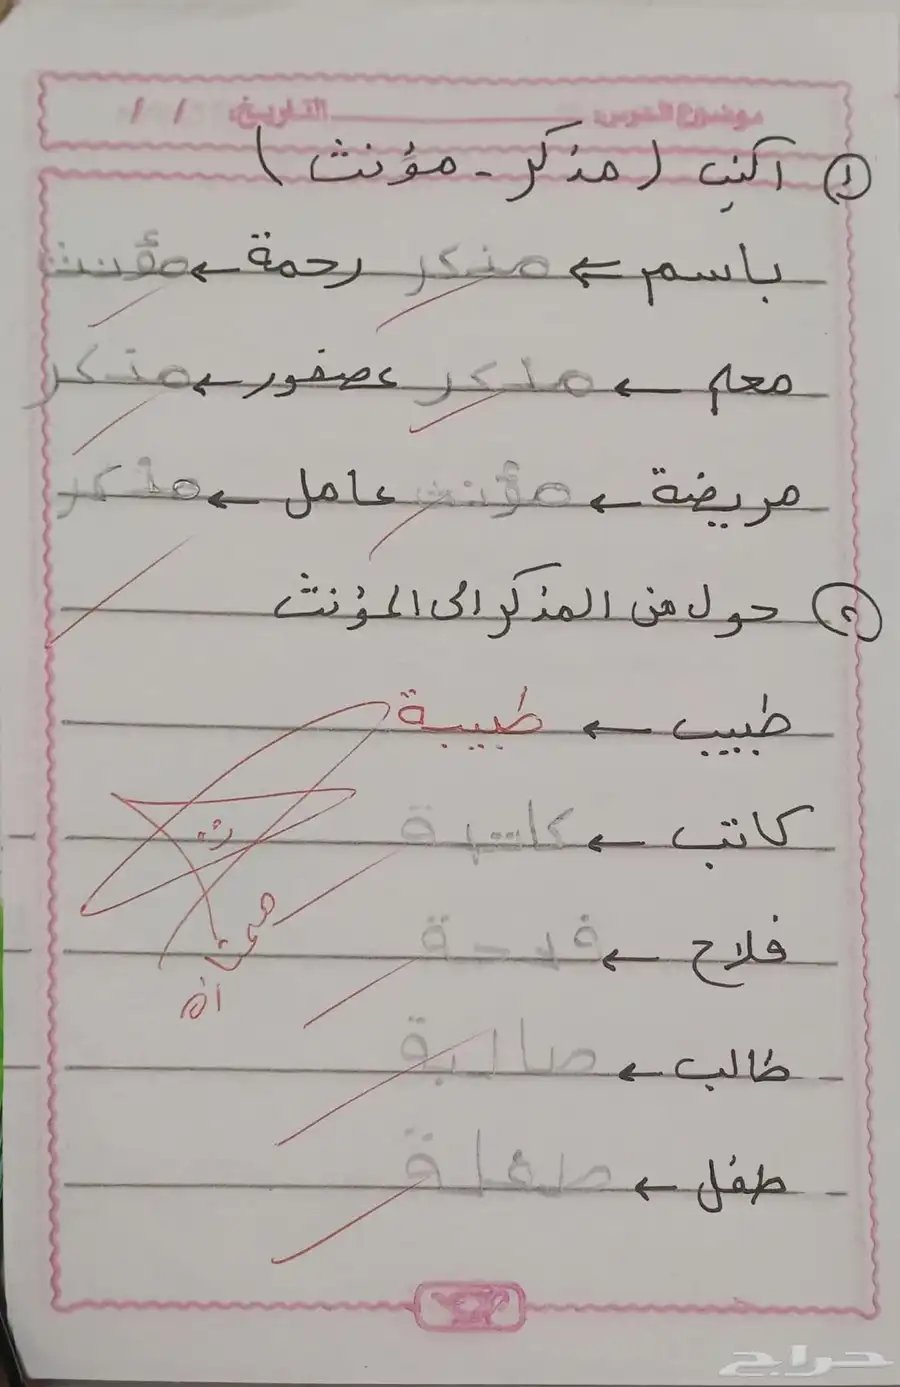 موضوع الدرس: التاريخ: / /
① اكتب (مذكر - مؤنث)
باسم ← مذكر رحمة ← مؤنث
معلم ← مذكر عصفور ← مذكر
مريضة ← مؤنث عامل ← مذكر
② حول من المذكر الى المؤنث
طبيب ← طبيبة
كاتب ← كاتبة
فلاح ← فلاحة
طالب ← طالبة
طفل ← طفلة
حراج